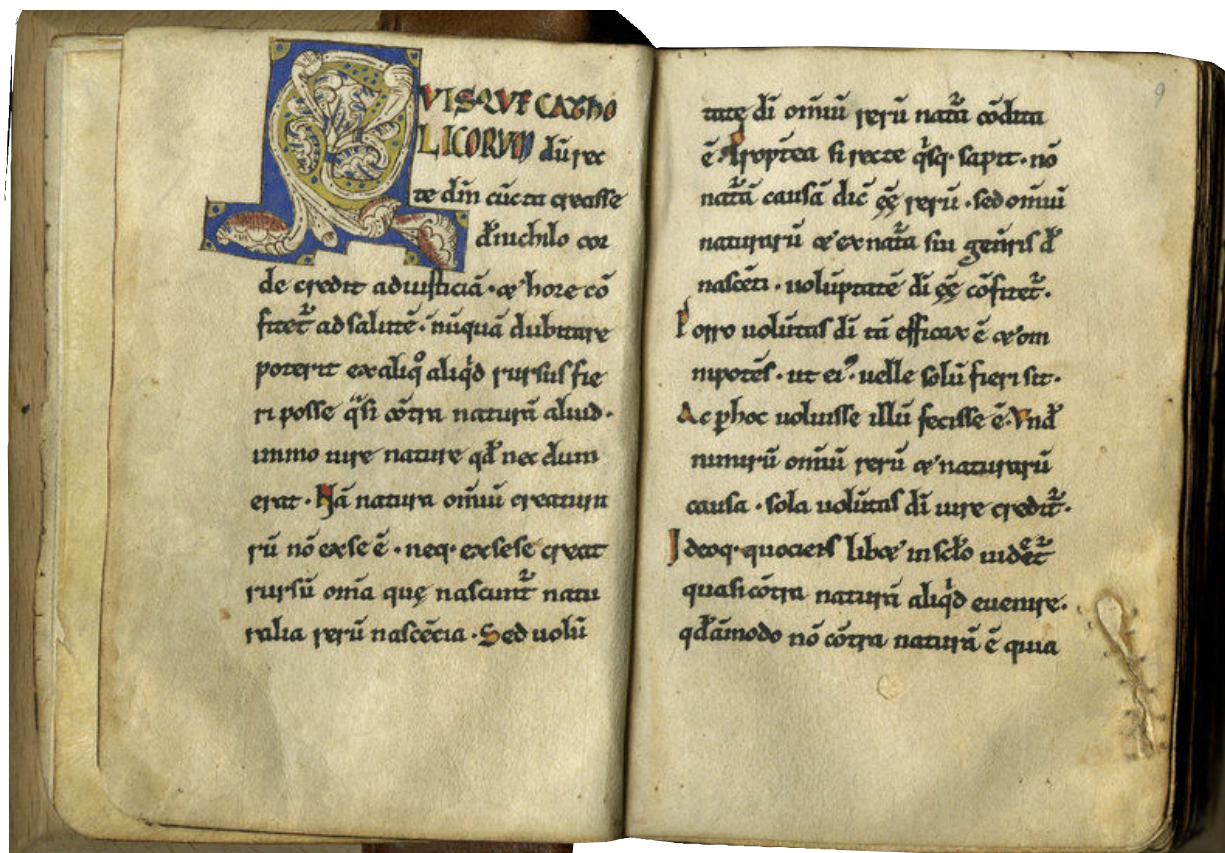 QVISQVE CATHO
LICORVM dū rec
te dn̄m cūcta creasse
de nichilo cor
de credit ad iusticiā · & hore cō
fitet᷑ ad salutē · nūquā dubitare
poterit ex aliqͦ aliqͥd rursus fie
ri posse qͣsi cōtra naturā aliud ·
immo uire nature qđ nec dum
erat · Nā natura om̄iū creatura
rū nō ex se ē · neq · ex sese creat
rursū om̄a quę nascunt᷑ natu
ralia rerū nascēcia · Sed uolū
9
tate dī om̄iū rerū natͣa cōdita
ē · Propt̄ea si recte qͥsq · sapit · nō
natͣā causā dic̄ ęę rerū · sed om̄iū
naturarū & ex natͣa sui gen̄is đ
nascēti · uolūtatē dī ęę cōfitet᷑ ·
Porro uolūtas dī tā efficax ē & om
nipotēs · ut ei᷒ uelle solū fieri sit ·
Ac ꝑ hoc uoluisse illū fecisse ē · Vnđ
nimirū om̄iū rerū & naturarū
causa · sola uolūtas dī uire credit᷑ ·
Ideoq · quociens lib& in sc̄lo uidet᷑
quasi cōtra naturā aliqͥd euenire ·
qđāmodo nō cōtra naturā ē quia